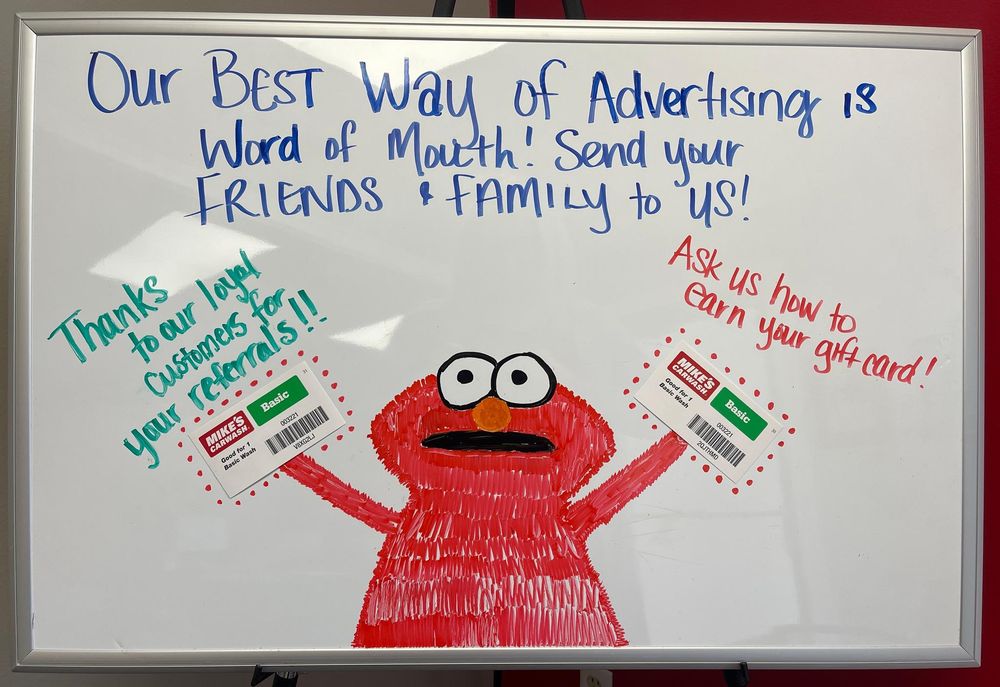 Our BEST Way of Advertising is
Word of Mouth! Send your
FRIENDS & FAMILY to US!
Thanks
to our loyal
customers for
your referrals!!
Ask us how to
earn your gift card!
MIKE'S
CARWASH
Basic
Good for 1
Basic Wash
003221
MIKE'S
CARWASH
Basic
Good for 1
Basic Wash
003221